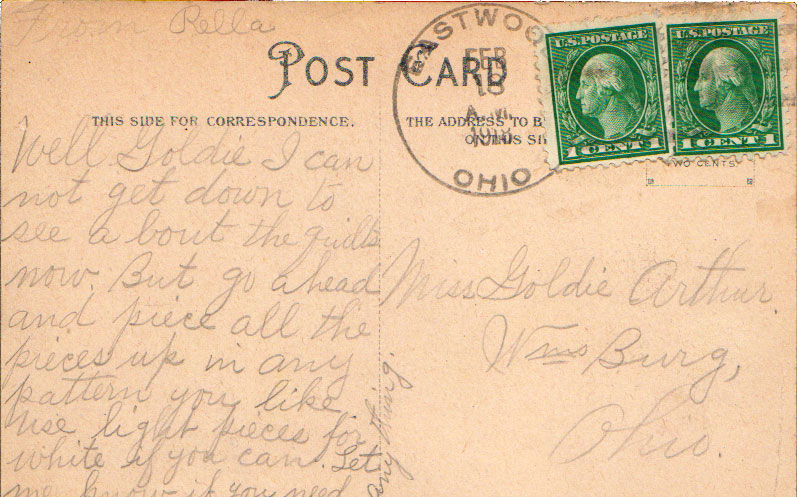 From Rella
POST CARD
THIS SIDE FOR CORRESPONDENCE.
THE ADDRESS TO B
ON THIS SI
EASTWOO
FEB
18
A.M.
1918
OHIO
U.S. POSTAGE
1 CENT 1
U.S. POSTAGE
1 CENT 1
TWO CENTS
Well Goldie I can
not get down to
see a bout the quilts
now. But go ahead
and piece all the
pieces up in any
pattern you like
use light pieces for
white if you can. Let
me know if you need
any thing.
Miss Goldie Arthur.
Wms Burg,
Ohio.